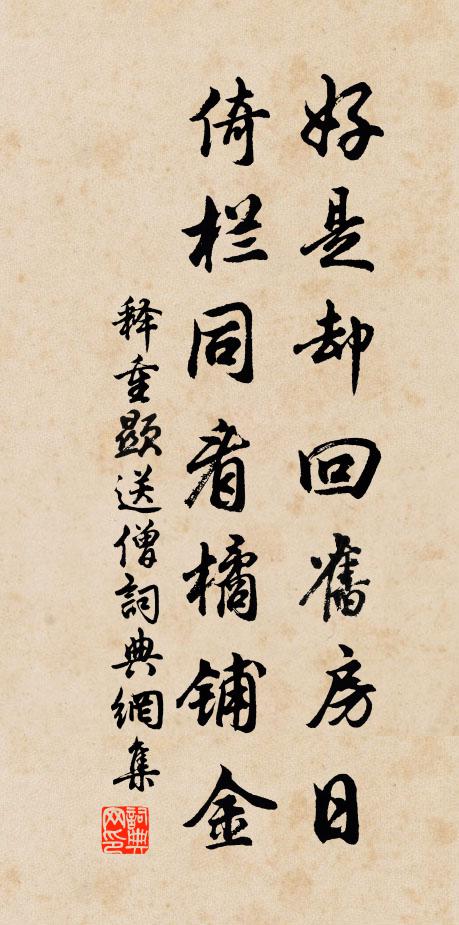 好是却回舊房日
倚栏同看橘铺金
释重顯送僧詞典網集
詞典网印